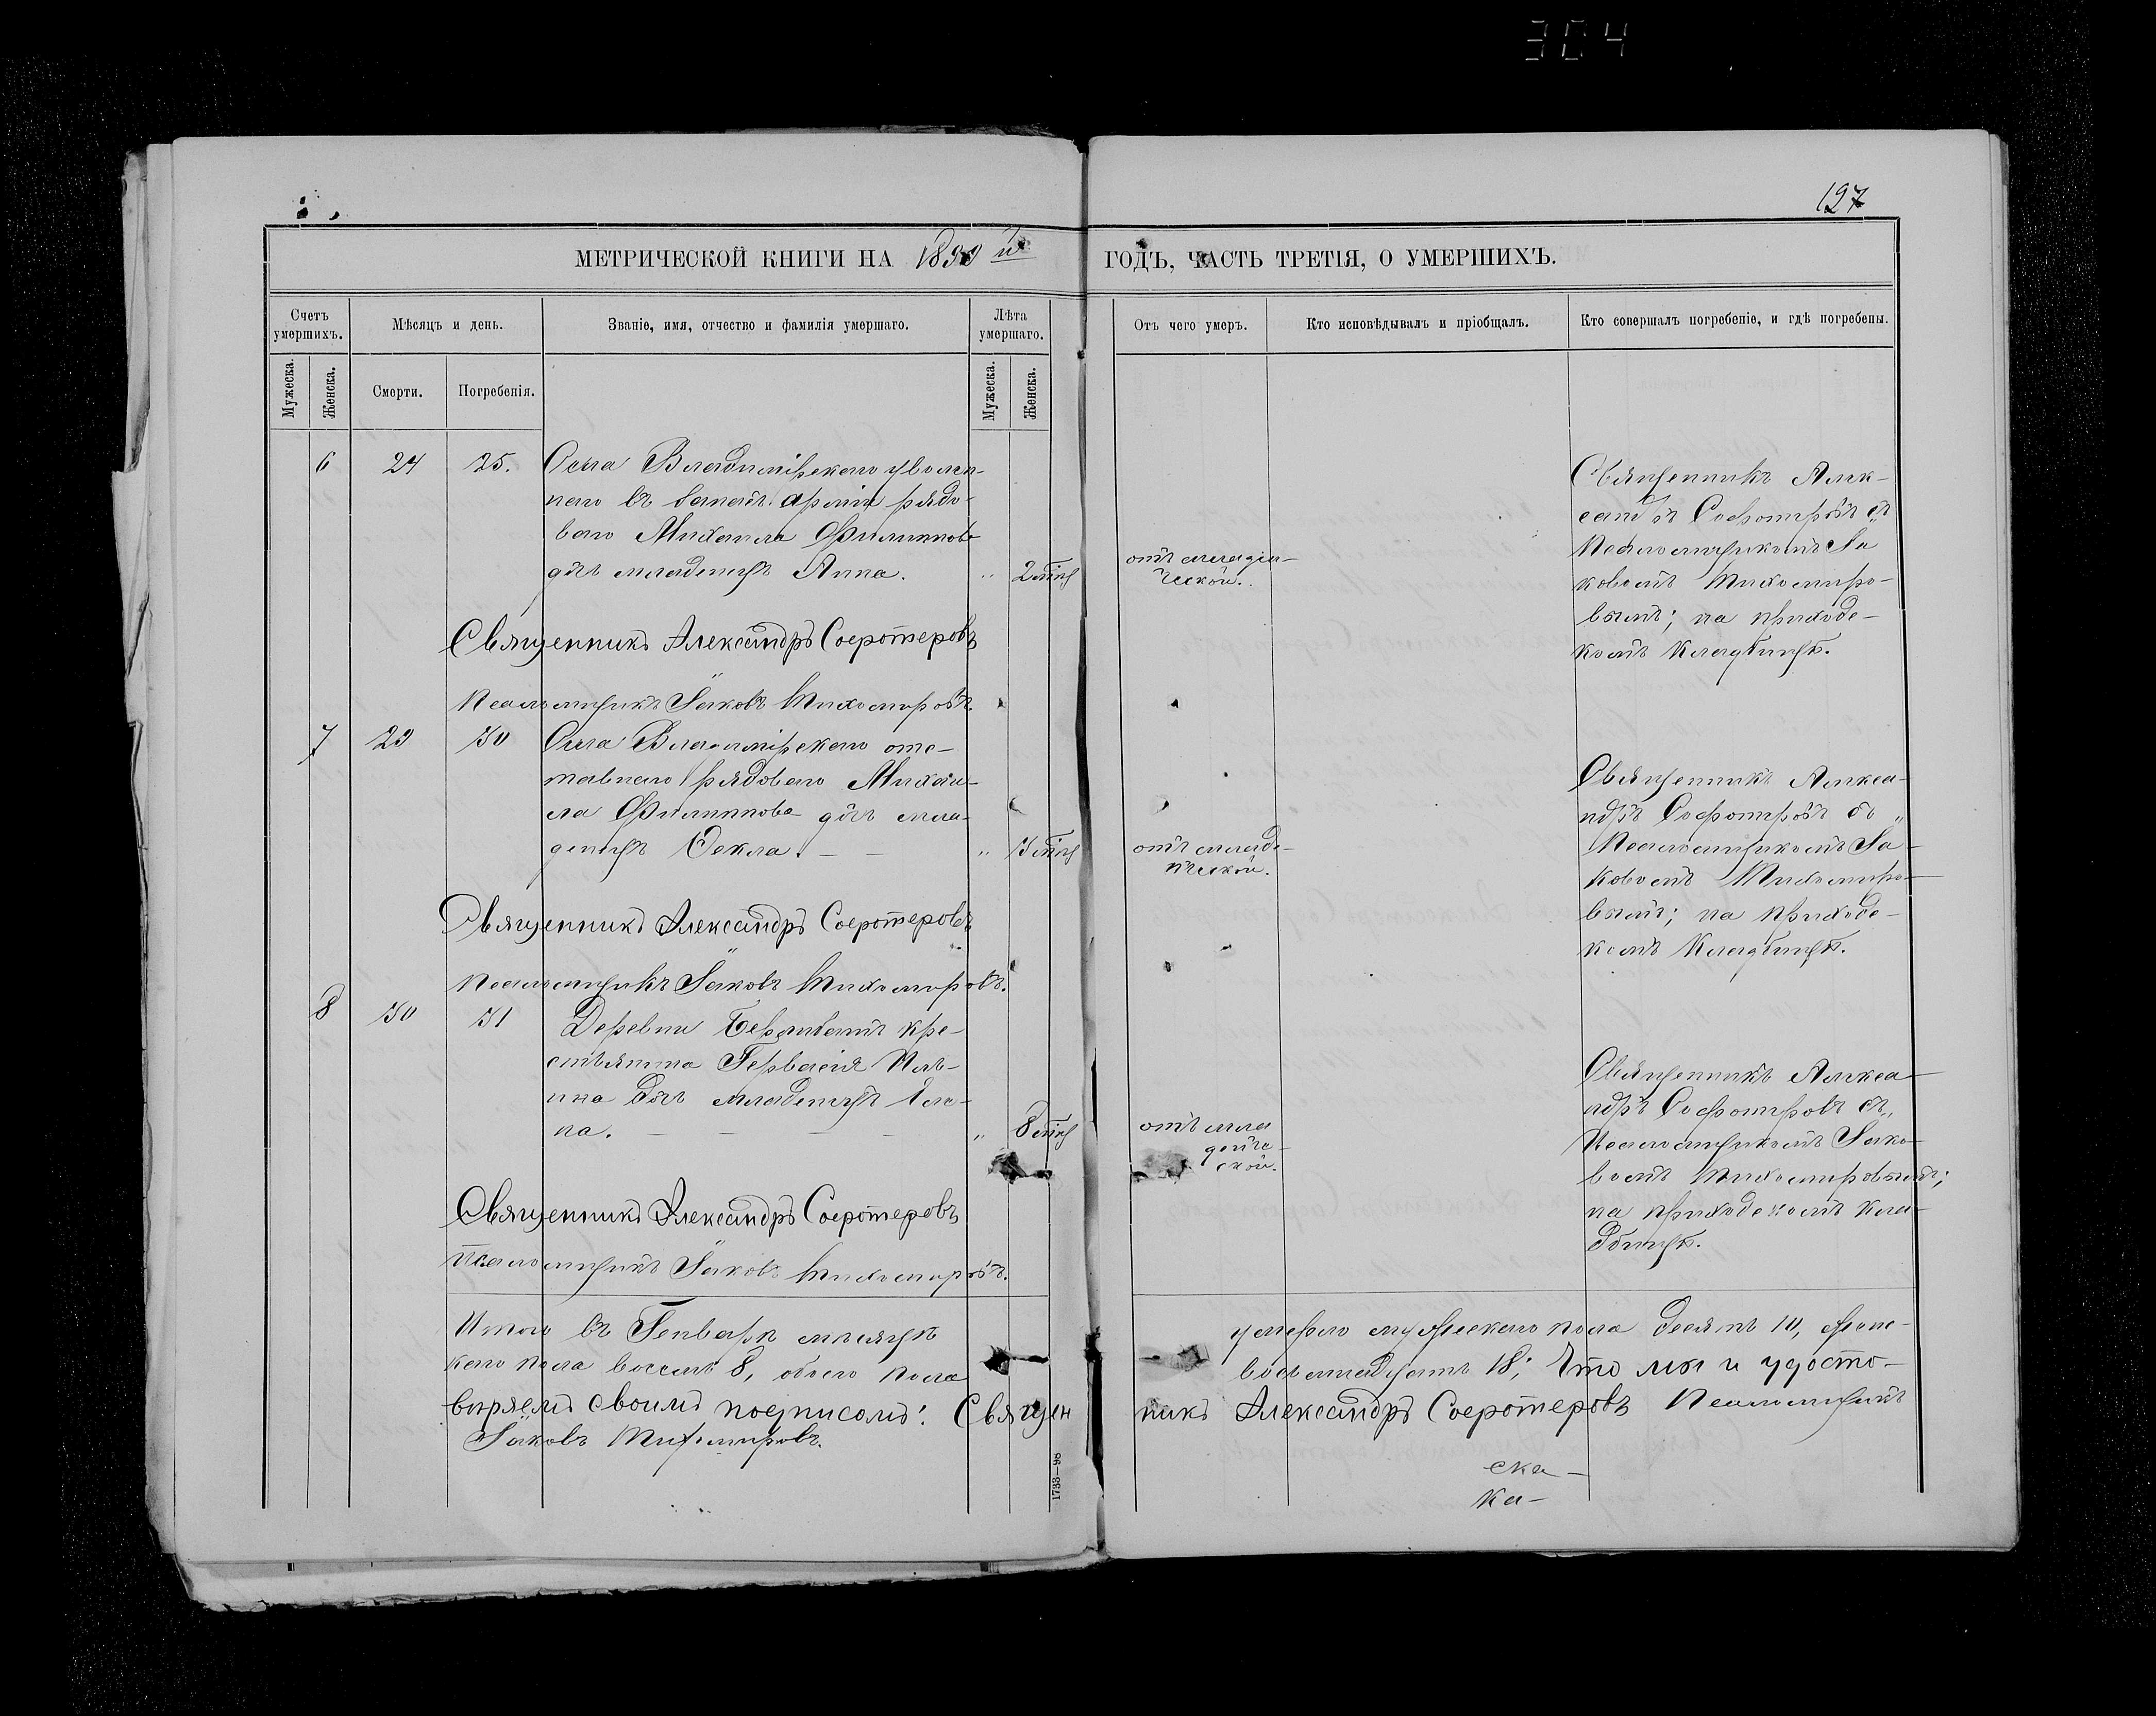 304
127
МЕТРИЧЕСКОЙ КНИГИ НА 1899 й ГОДЪ, ЧАСТЬ ТРЕТІЯ, О УМЕРШИХЪ.
Счетъ умершихъ.
Мѣсяцъ и день.
Званіе, имя, отчество и фамилія умершаго.
Лѣта умершаго.
Отъ чего умеръ.
Кто исповѣдывалъ и пріобщалъ.
Кто совершалъ погребеніе, и гдѣ погребены.
Мужеска.
Женска.
Смерти.
Погребенія.
Мужеска.
Женска.
6 24 25.
Села Владимірскаго уволен-
наго въ запасъ арміи рядо-
ваго Михаила Филиппова
дочь младенецъ Анна.
" 2 мѣсяц
отъ младен-
ческой.
Священникъ Алек-
сандръ Соеротеровъ съ
Псаломщикомъ Іа
ковомъ Тихомиро-
вымъ; на приходс-
комъ кладбищѣ.
Священникъ Александръ Соеротеровъ
Псаломщикъ Іаковъ Тихомировъ.
7 29 30
Села Владимірскаго отс-
тавнаго рядоваго Михаи-
ла Филиппова дочь мла-
денецъ Ѳекла.
" 3 мѣсяц
отъ младе-
нческой.
Священникъ Алекса-
ндръ Соеротеровъ съ
Псаломщикомъ Іа-
ковомъ Тихомиро-
вымъ; на приходс-
комъ кладбищѣ.
Священникъ Александръ Соеротеровъ
Псаломщикъ Іаковъ Тихомировъ.
8 30 31
Деревни кре-
стьянина Гервасія Иль-
ина дочь младенецъ Еле-
на.
" 8 мѣсяц
отъ мла
денче-
ской.
Священникъ Алекса-
ндръ Соеротеровъ съ
Псаломщикомъ Іако-
вомъ Тихомировымъ;
на приходскомъ кла-
дбищѣ.
Священникъ Александръ Соеротеровъ
Псаломщикъ Іаковъ Тихомировъ.
Итого въ Генварѣ мѣсяцѣ умерло мужескаго пола десять 10, женс-
каго пола восемь 8, обоего пола восемнадцать 18; Что мы и удосто-
вѣряемъ своимъ подписомъ: Священникъ Александръ Соеротеровъ Псаломщикъ
Іаковъ Тихомировъ.
ска-
ка-
1733—98